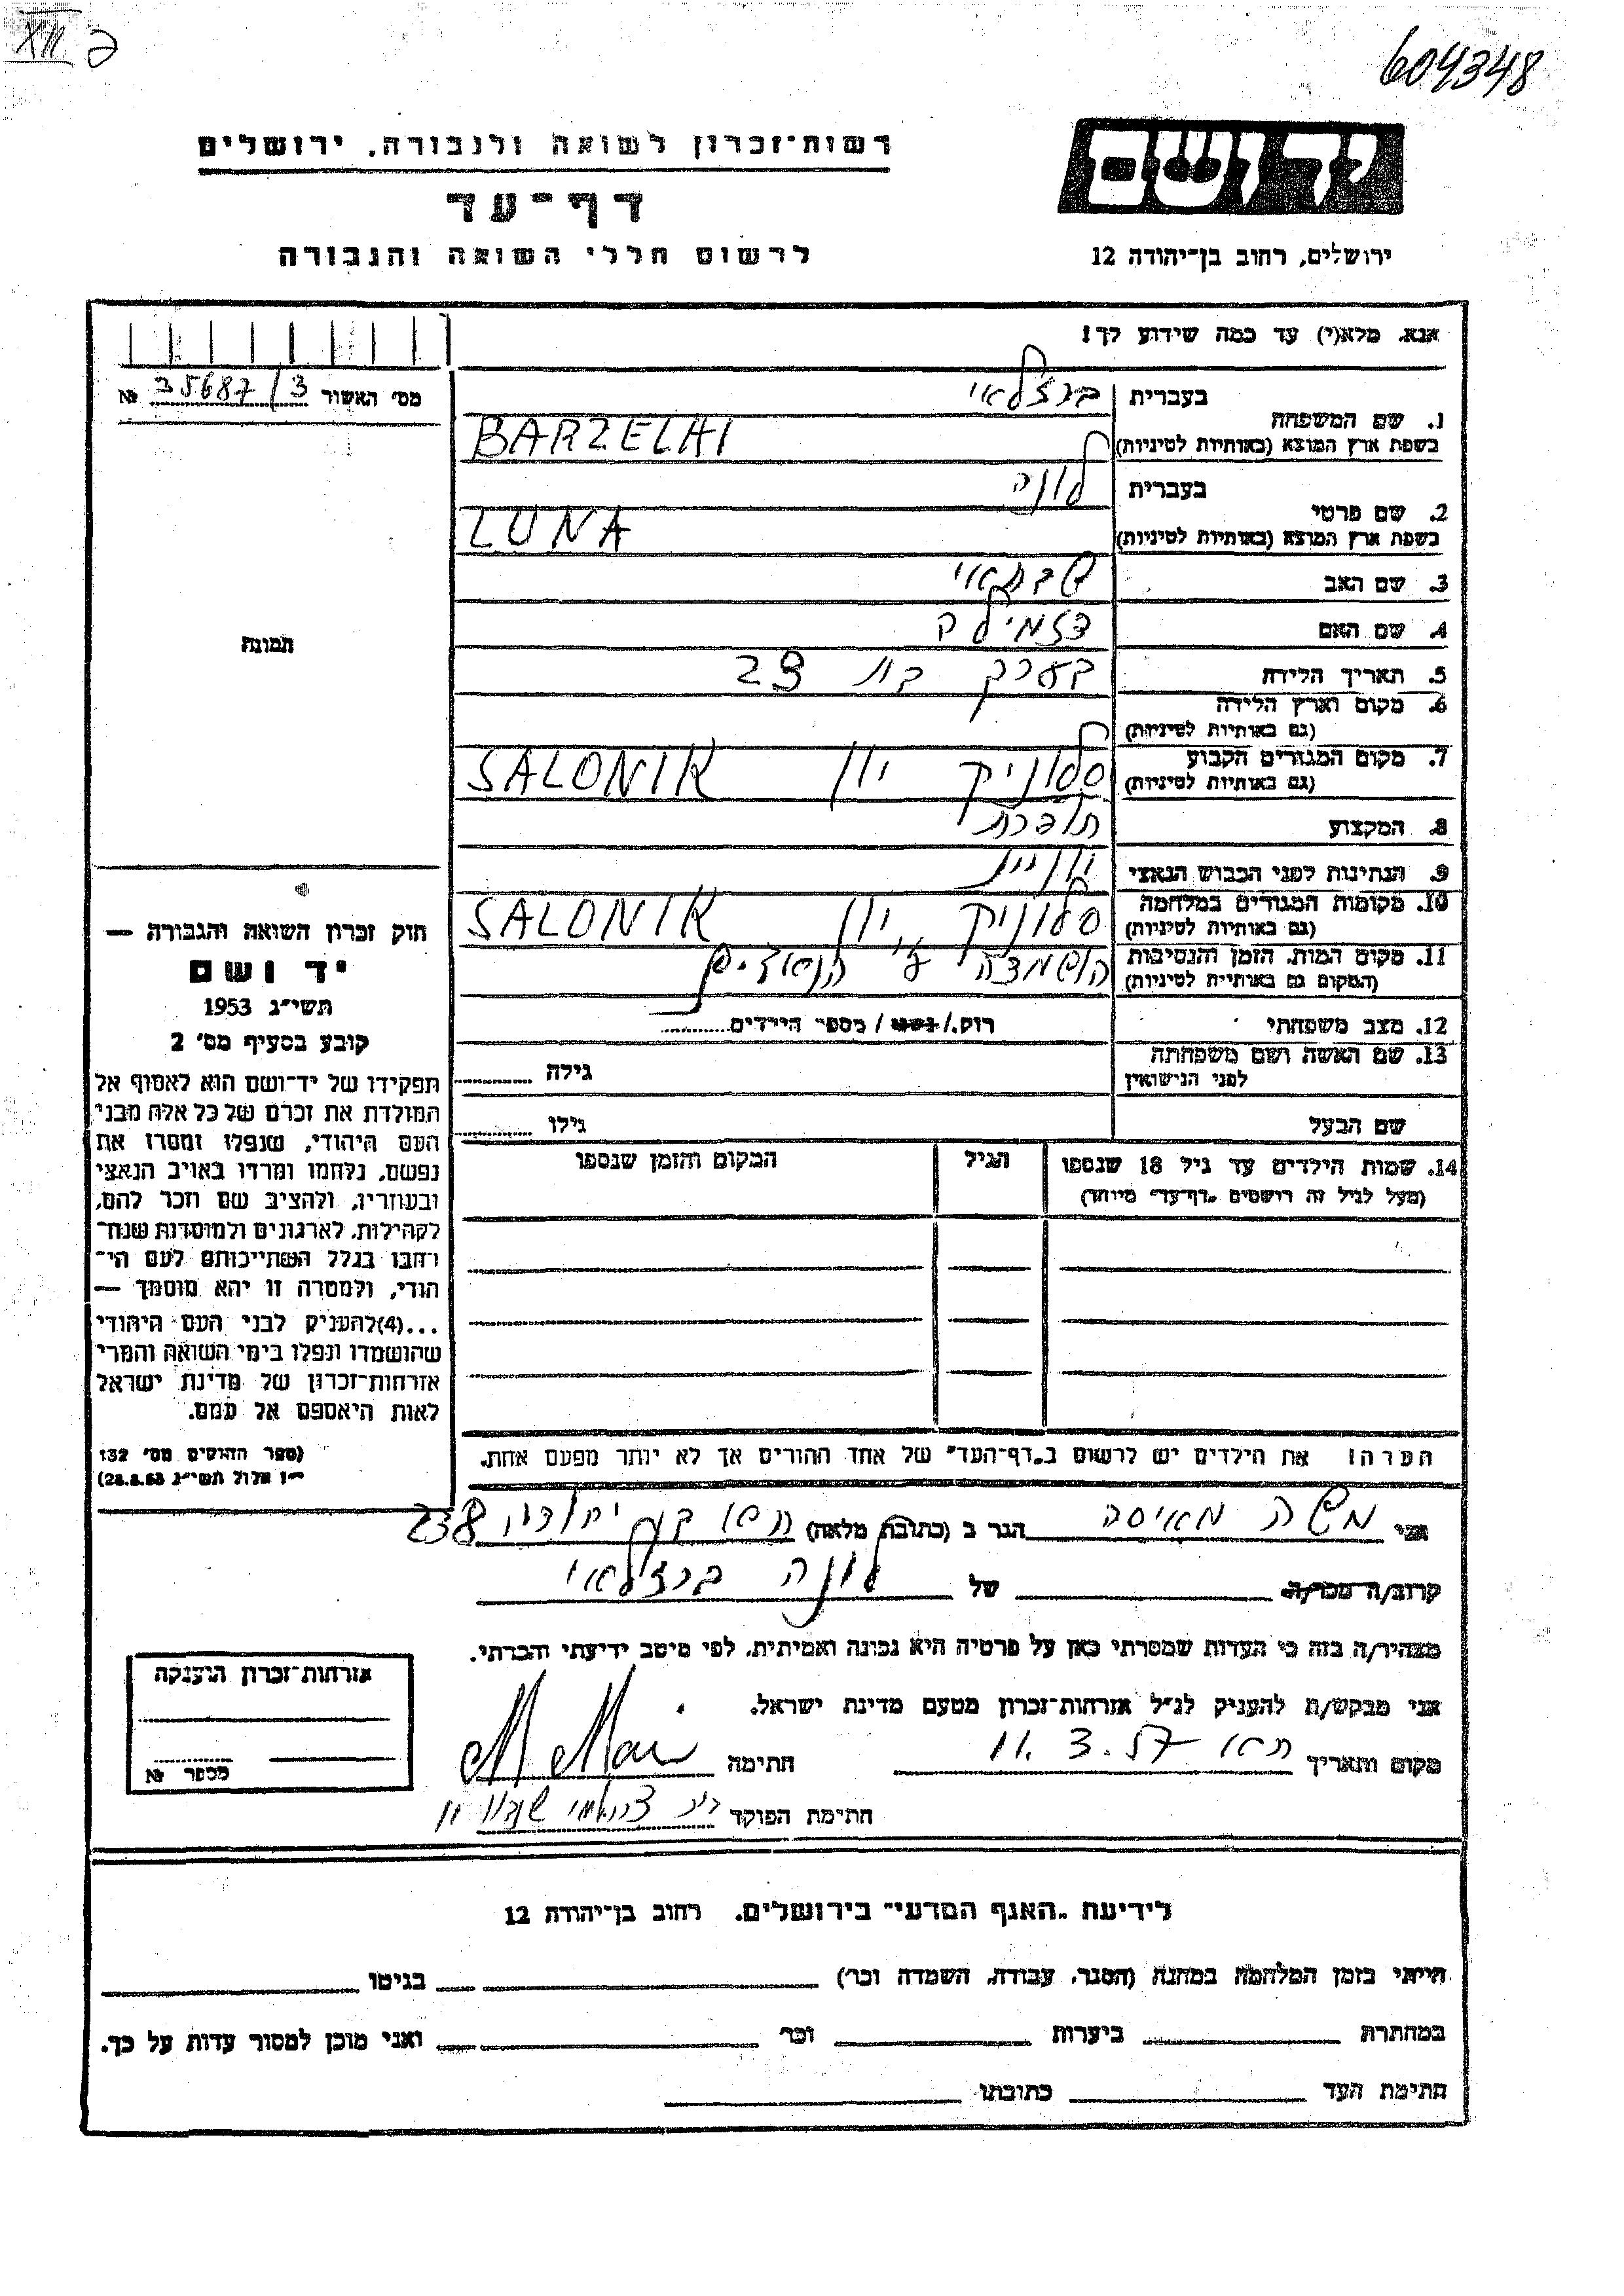 XII
604348
רשות־זכרון לשואה ולגבורה, ירושלים
דף־עד
לרשום חללי השואה והגבורה
יד ושם
ירושלים, רחוב בן־יהודה 12
אנא, מלא(י) עד כמה שידוע לך!
מס' האשור 35687/3 №
1. שם המשפחה
בעברית ברזלאי
בשפת ארץ המוצא (באותיות לטיניות) BARZELAI
2. שם פרטי
בעברית לונה
בשפת ארץ המוצא (באותיות לטיניות) LUNA
3. שם האב שבתאי
4. שם האם דזמילה
5. תאריך הלידה בערך בת 23
6. מקום וארץ הלידה
(גם באותיות לטיניות)
7. מקום המגורים הקבוע
(גם באותיות לטיניות) סלוניק יון SALONIK
8. המקצוע תופרת
9. הנתינות לפני הכבוש הנאצי
10. מקומות המגורים במלחמה
(גם באותיות לטיניות) סלוניק יון SALONIK
11. מקום המות, הזמן והנסיבות
(המקום גם באותיות לטיניות) הושמדה ע"י הנאצים
12. מצב משפחתי רוק/נשוי/ מספר הילדים
13. שם האשה ושם משפחתה
לפני הנישואין גילה
שם הבעל גילו
14. שמות הילדים עד גיל 18 שנספו הגיל המקום והזמן שנספו
(מעל לגיל זה רושמים "דף־עד" מיוחד)
תמונה
חוק זכרון השואה והגבורה —
יד ושם
תשי"ג 1953
קובע בסעיף מס' 2
תפקידו של יד־ושם הוא לאסוף אל
המולדת את זכרם של כל אלה מבני
העם היהודי, שנפלו ומסרו את
נפשם, נלחמו ומרדו באויב הנאצי
ובעוזריו, ולהציב שם וזכר להם,
לקהילות, לארגונים ולמוסדות שנח־
רחבו בגלל השתייכותם לעם הי־
הודי, ולמטרה זו יהא מוסמך —
...(4)להעניק לבני העם היהודי
שהושמדו ונפלו בימי השואה והמרי
אזרחות־זכרון של מדינת ישראל
לאות היאספם אל עמם.
(ספר החוקים מס' 132
י"ז אלול תשי"ג 28.8.53)
הערה! את הילדים יש לרשום ב"דף־העד" של אחד ההורים אך לא יותר מפעם אחת.
אני משה מאיסה הגר ב (כתובת מלאה) ת"א בן יהודה 238
קרוב/ה מכר/ה של לונה ברזלאי
מצהיר/ה בזה כי העדות שמסרתי כאן על פרטיה היא נכונה ואמיתית, לפי מיטב ידיעתי והכרתי.
אני מבקש/ת להעניק לנ"ל אזרחות־זכרון מטעם מדינת ישראל.
מקום ותאריך ת"א 11.3.57 חתימה
חתימת הפוקד
אזרחות־זכרון הוענקה
מספר №
לידיעת "האגף המדעי" בירושלים, רחוב בן־יהודה 12
הייתי בזמן המלחמה במחנה (הסגר, עבודה, השמדה וכו') בגיטו
במחתרת ביערות וכו' ואני מוכן למסור עדות על כך.
חתימת העד כתובתו